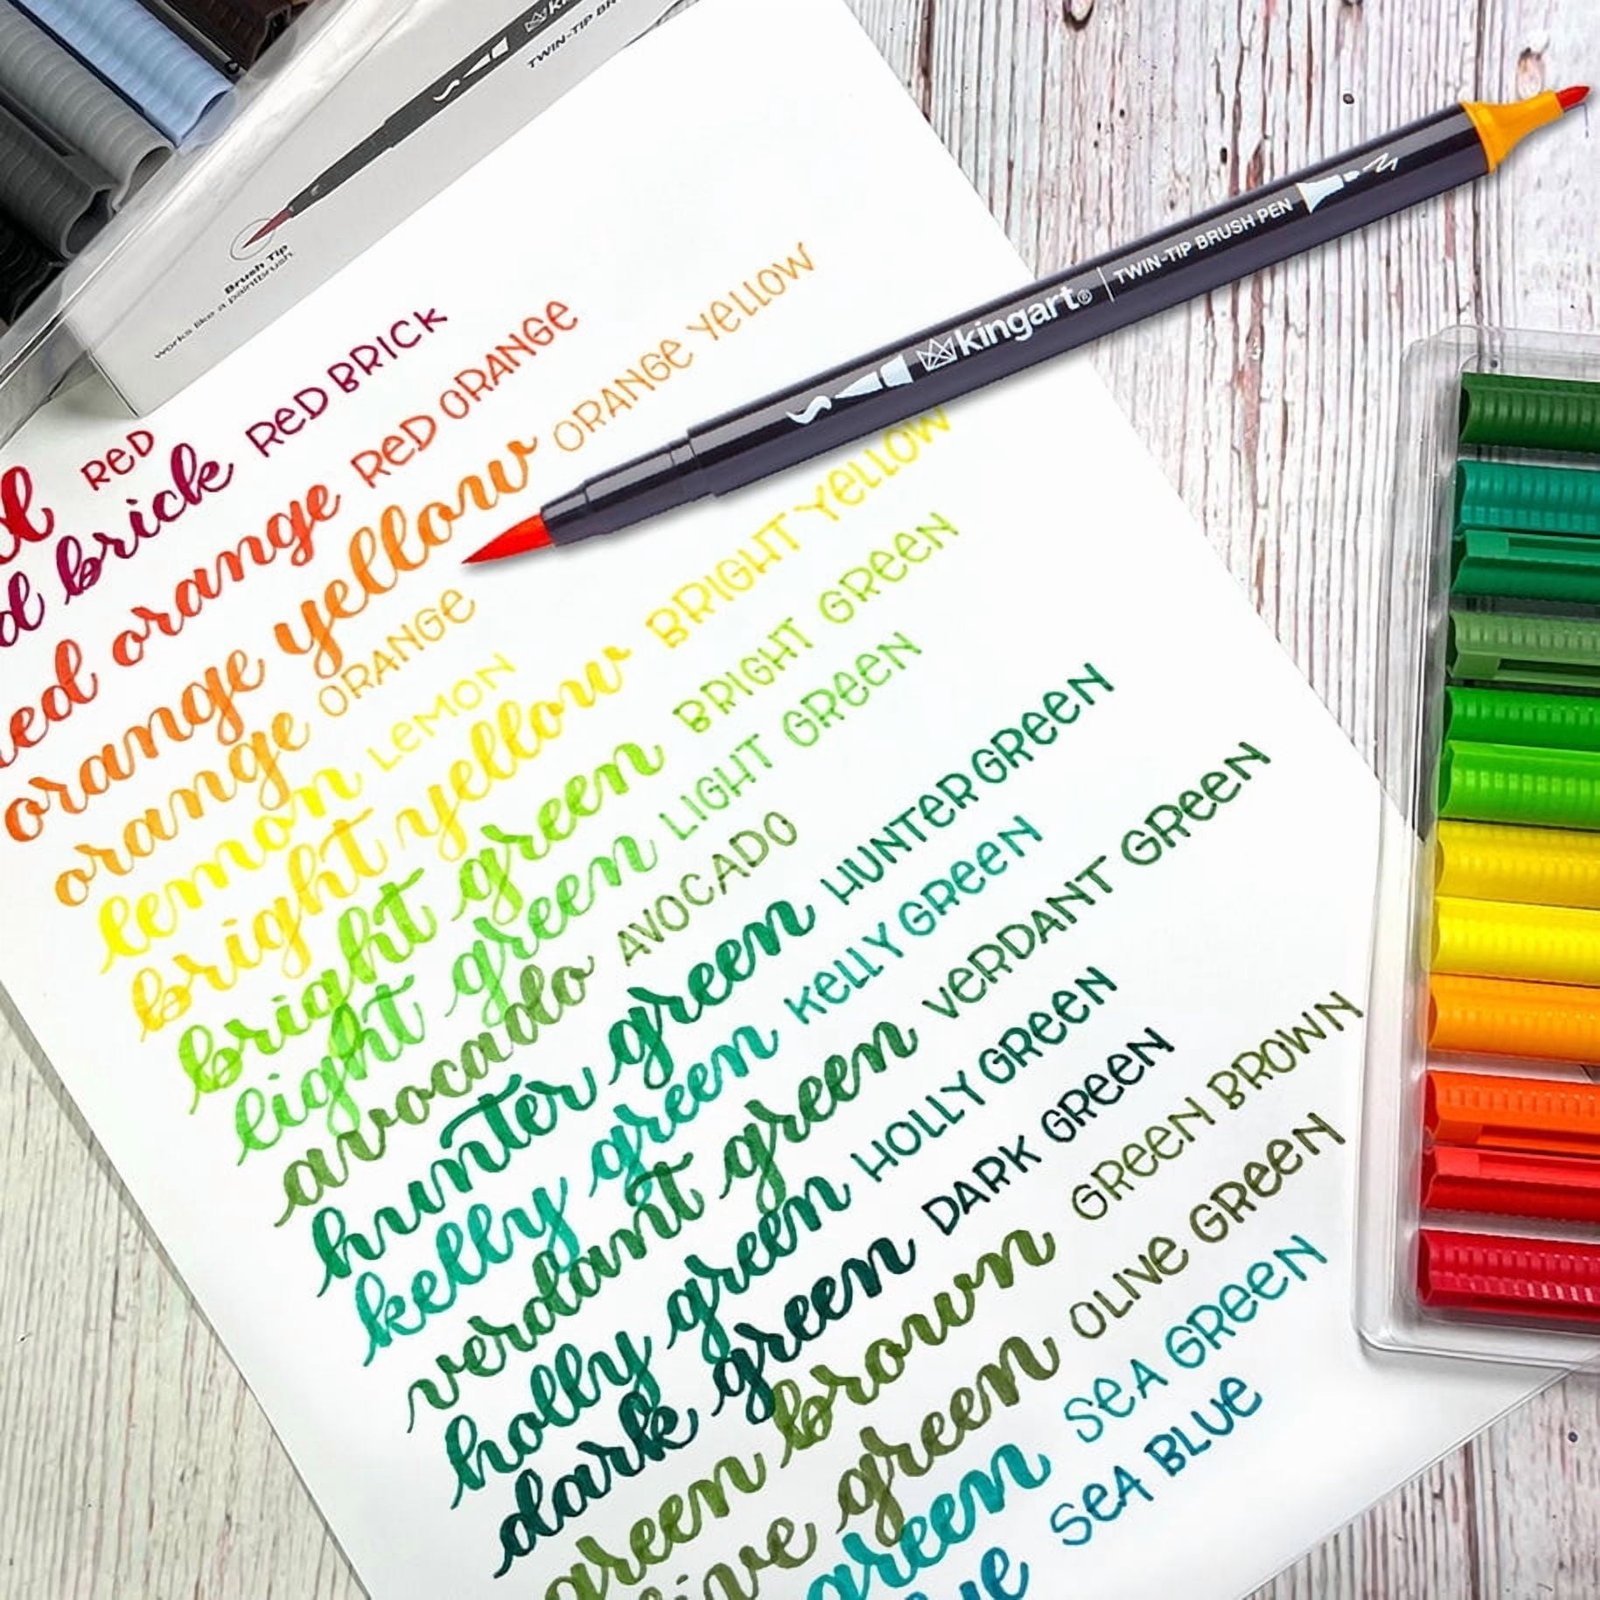 kin
TWIN-TIP BR
Brush Tip
works like a paintbrush
kingart® | TWIN-TIP BRUSH PEN
RED
d brick RED BRICK
red orange RED ORANGE
orange yellow ORANGE YELLOW
orange ORANGE
lemon LEMON
bright yellow BRIGHT YELLOW
bright green BRIGHT GREEN
light green LIGHT GREEN
avocado AVOCADO
hunter green HUNTER GREEN
kelly green KELLY GREEN
verdant green VERDANT GREEN
holly green HOLLY GREEN
dark green DARK GREEN
green brown GREEN BROWN
live green OLIVE GREEN
green SEA GREEN
ue SEA BLUE